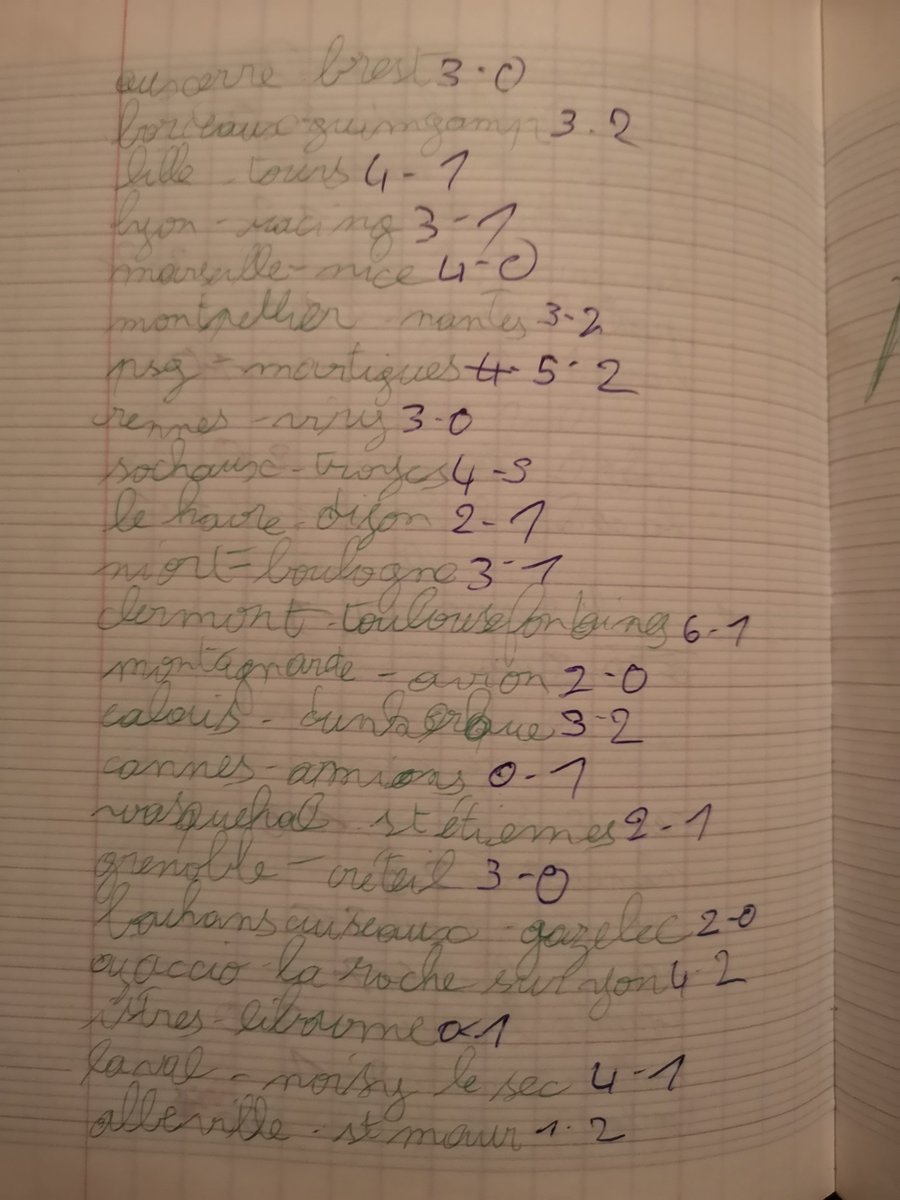 auxerre brest 3-0
bordeaux-guimgamp 3-2
lille - tours 4-1
lyon - racing 3-1
marseille-nice 4-0
montpellier - nantes 3-2
psg - martigues 5-2
rennes - viry 3-0
sochaux - troyes 4-3
le havre - dijon 2-1
niort - boulogne 3-1
clermont - toulouse fontaines 6-1
montagnarde - avion 2-0
calais - dunkerque 3-2
cannes - amiens 0-1
wasquehal - st étiennes 2-1
grenoble - créteil 3-0
louhans cuiseaux - gazelec 2-0
ajaccio - la roche sur yon 4-2
istres - libourne 0-1
laval - noisy le sec 4-1
abbeville - st maur 1-2